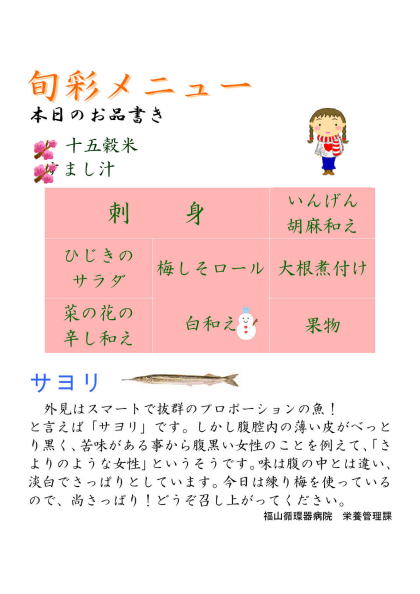 旬彩メニュー
本日のお品書き
十五穀米
すまし汁
刺　身
いんげん
胡麻和え
ひじきの
サラダ
梅しそロール
大根煮付け
菜の花の
辛し和え
白和え
果物
サヨリ
外見はスマートで抜群のプロポーションの魚！
と言えば「サヨリ」です。しかし腹腔内の薄い皮がべっと
り黒く、苦味がある事から腹黒い女性のことを例えて、「さ
よりのような女性」というそうです。味は腹の中とは違い、
淡白でさっぱりとしています。今日は練り梅を使っている
ので、尚さっぱり！どうぞ召し上がってください。
福山循環器病院　栄養管理課